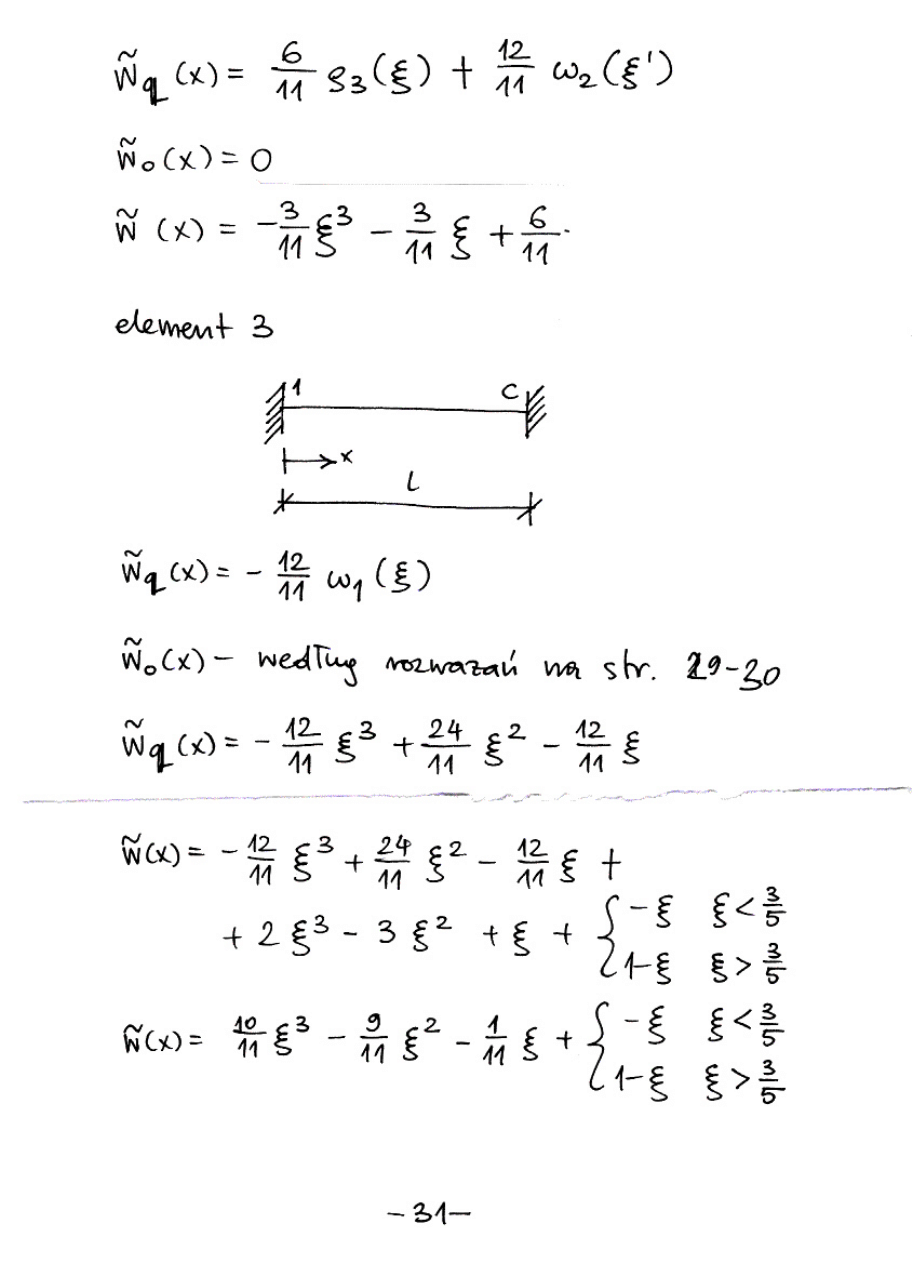 w̃q (x) = 6/11 ρ3(ξ) + 12/11 ω2(ξ')
w̃o (x) = 0
w̃ (x) = -3/11 ξ³ - 3/11 ξ + 6/11
element 3
1 C
x
L
w̃q (x) = - 12/11 ω1 (ξ)
w̃o (x) – według rozważań na str. 29-30
w̃q (x) = - 12/11 ξ³ + 24/11 ξ² - 12/11 ξ
w̃(x) = - 12/11 ξ³ + 24/11 ξ² - 12/11 ξ +
+ 2 ξ³ - 3 ξ² + ξ + { -ξ ξ < 3/5
1-ξ ξ > 3/5
w̃(x) = 10/11 ξ³ - 9/11 ξ² - 1/11 ξ + { -ξ ξ < 3/5
1-ξ ξ > 3/5
-31-